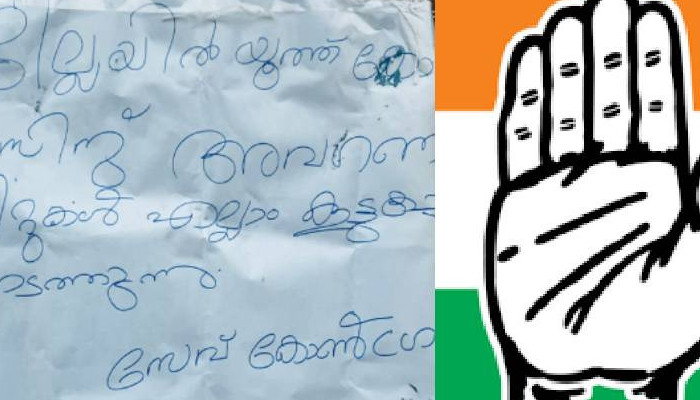 ജില്ലയിൽ യൂത്ത് കോ
സിന് അവഗണ
റ്റുകൾ എല്ലാം കൂട്ടുക
ടത്തുന്നു.
സേവ് കോൺഗ്ര